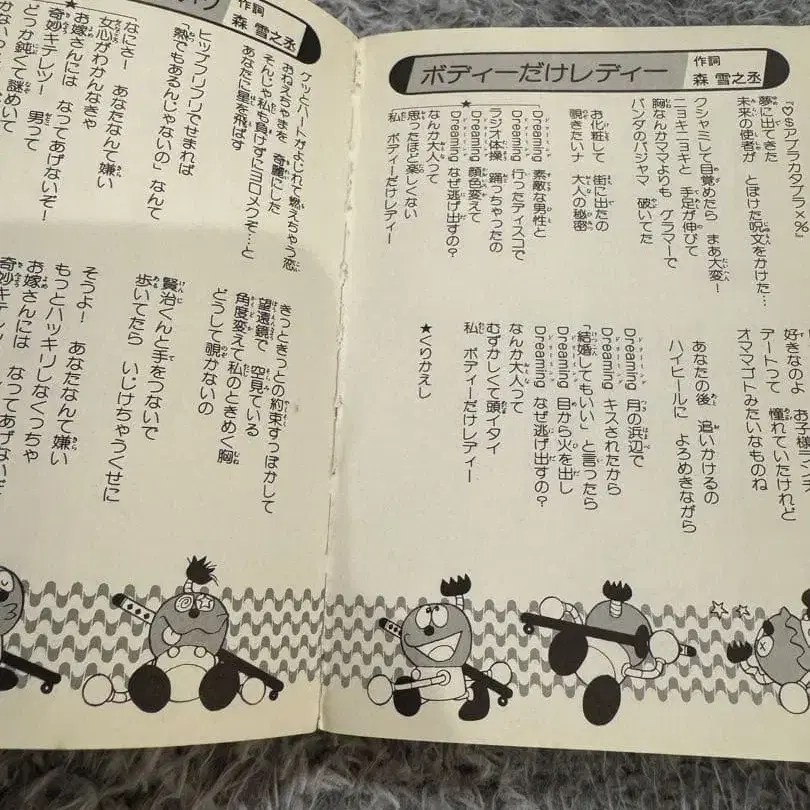 ボディーだけレディー
作詞
森 雪之丞
『♡$アブラカタブラ×%』
夢に出てきた
未来の使者が とぼけた呪文をかけた…
クシャミして目覚めたら まあ大変！
ニョキニョキと 手足が伸びて
胸なんかママよりも グラマーで
パンダのパジャマ 破いてた
お化粧して 街に出たの
覗きたいナ 大人の秘密
★
Dreaming 素敵な男性と
Dreaming 行ったディスコで
ラジオ体操 踊っちゃったの
Dreaming 顔色変えて
Dreaming なぜ逃げ出すの？
なんか大人って
思ったほど楽しくない
私 ボディーだけレディー
好きなのよ お子様ランチ
デートって 憧れていたけれど
オママゴトみたいなものね
あなたの後 追いかけるの
ハイヒールに よろめきながら
Dreaming 月の浜辺で
Dreaming キスされたから
「結婚してもいい」と言ったら
Dreaming 目から火を出し
Dreaming なぜ逃げ出すの？
なんか大人って
むずかしくて頭イタイ
私 ボディーだけレディー
★くりかえし
作詞
森 雪之丞
ケッとハートがよじれて燃えちゃう恋
おねえちゃまを 奇麗にした
そんじゃ私も負けずにヨロメクぞ…と
あなたに星を飛ばす
ヒップフリフリでせまれば
「熱でもあるんじゃないの」なんて
★
「なにさー あなたなんて嫌い
女心がわかんなきゃ
お嫁さんには なってあげないぞ！
奇妙キテレツー 男って
どうか鈍くて謎めいて
きっときっとの約束すっぽかして
望遠鏡で 空見ている
角度変えて私のときめく胸
どうして覗かないの
賢治くんと手をつないで
歩いてたら いじけちゃうくせに
そうよー あなたなんて嫌い
もっとハッキリしなくっちゃ
お嫁さんには なってあげないぞ
奇妙キテレツー